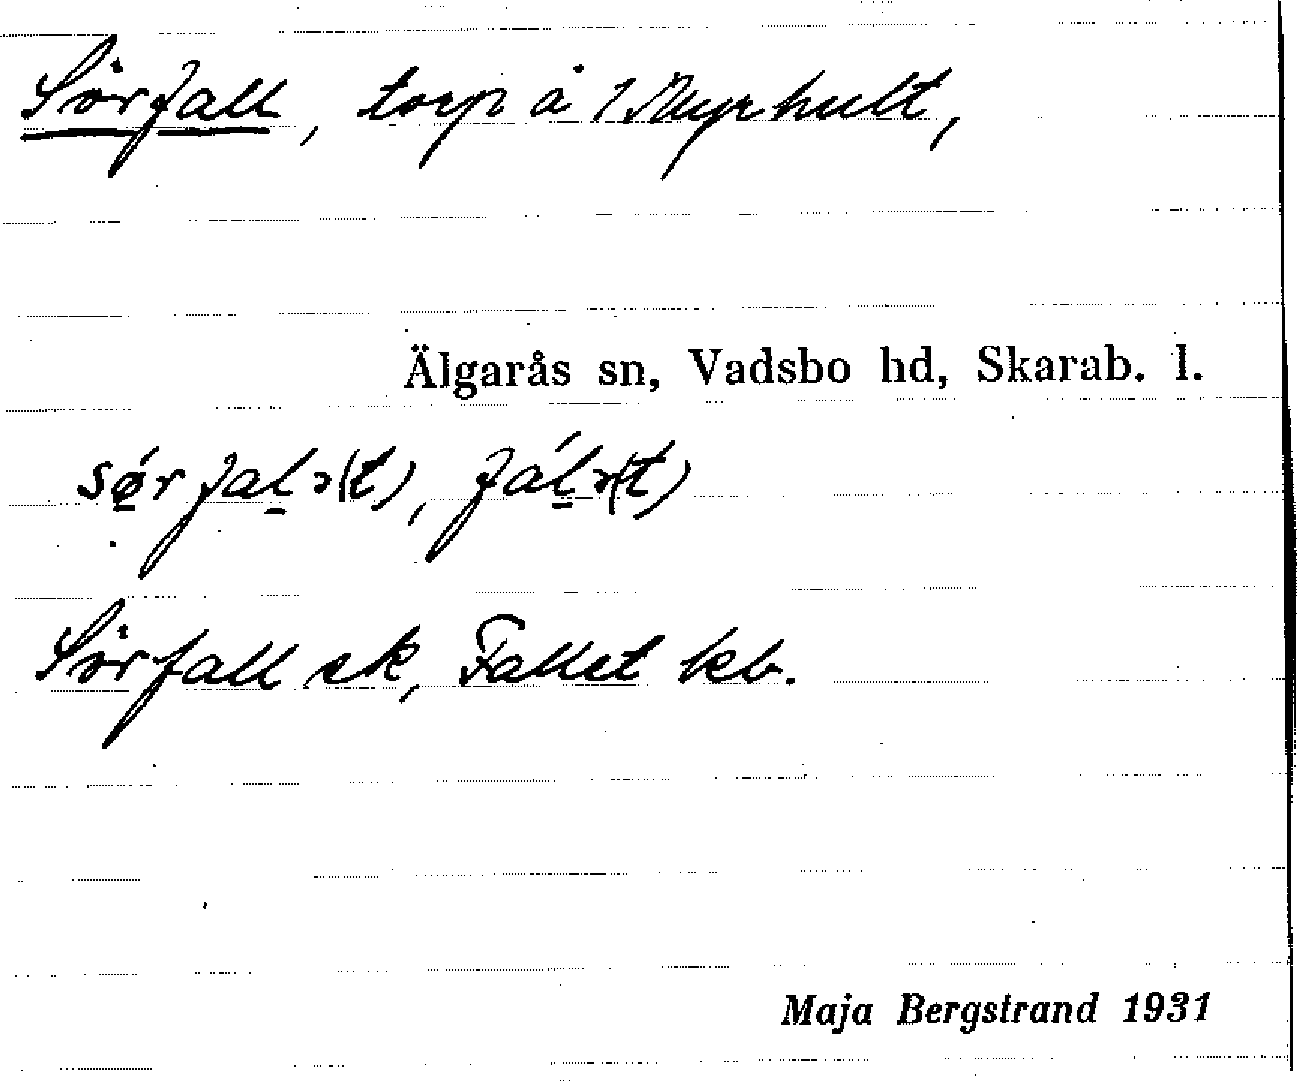 Sörfall, torp å 1 Myrhult,
Älgarås sn, Vadsbo hd, Skarab. l.
sǿ̱rfaḻɔ(t), fáḻɔ(t)
Sörfall ek, Fallet kb.
Maja Bergstrand 1931